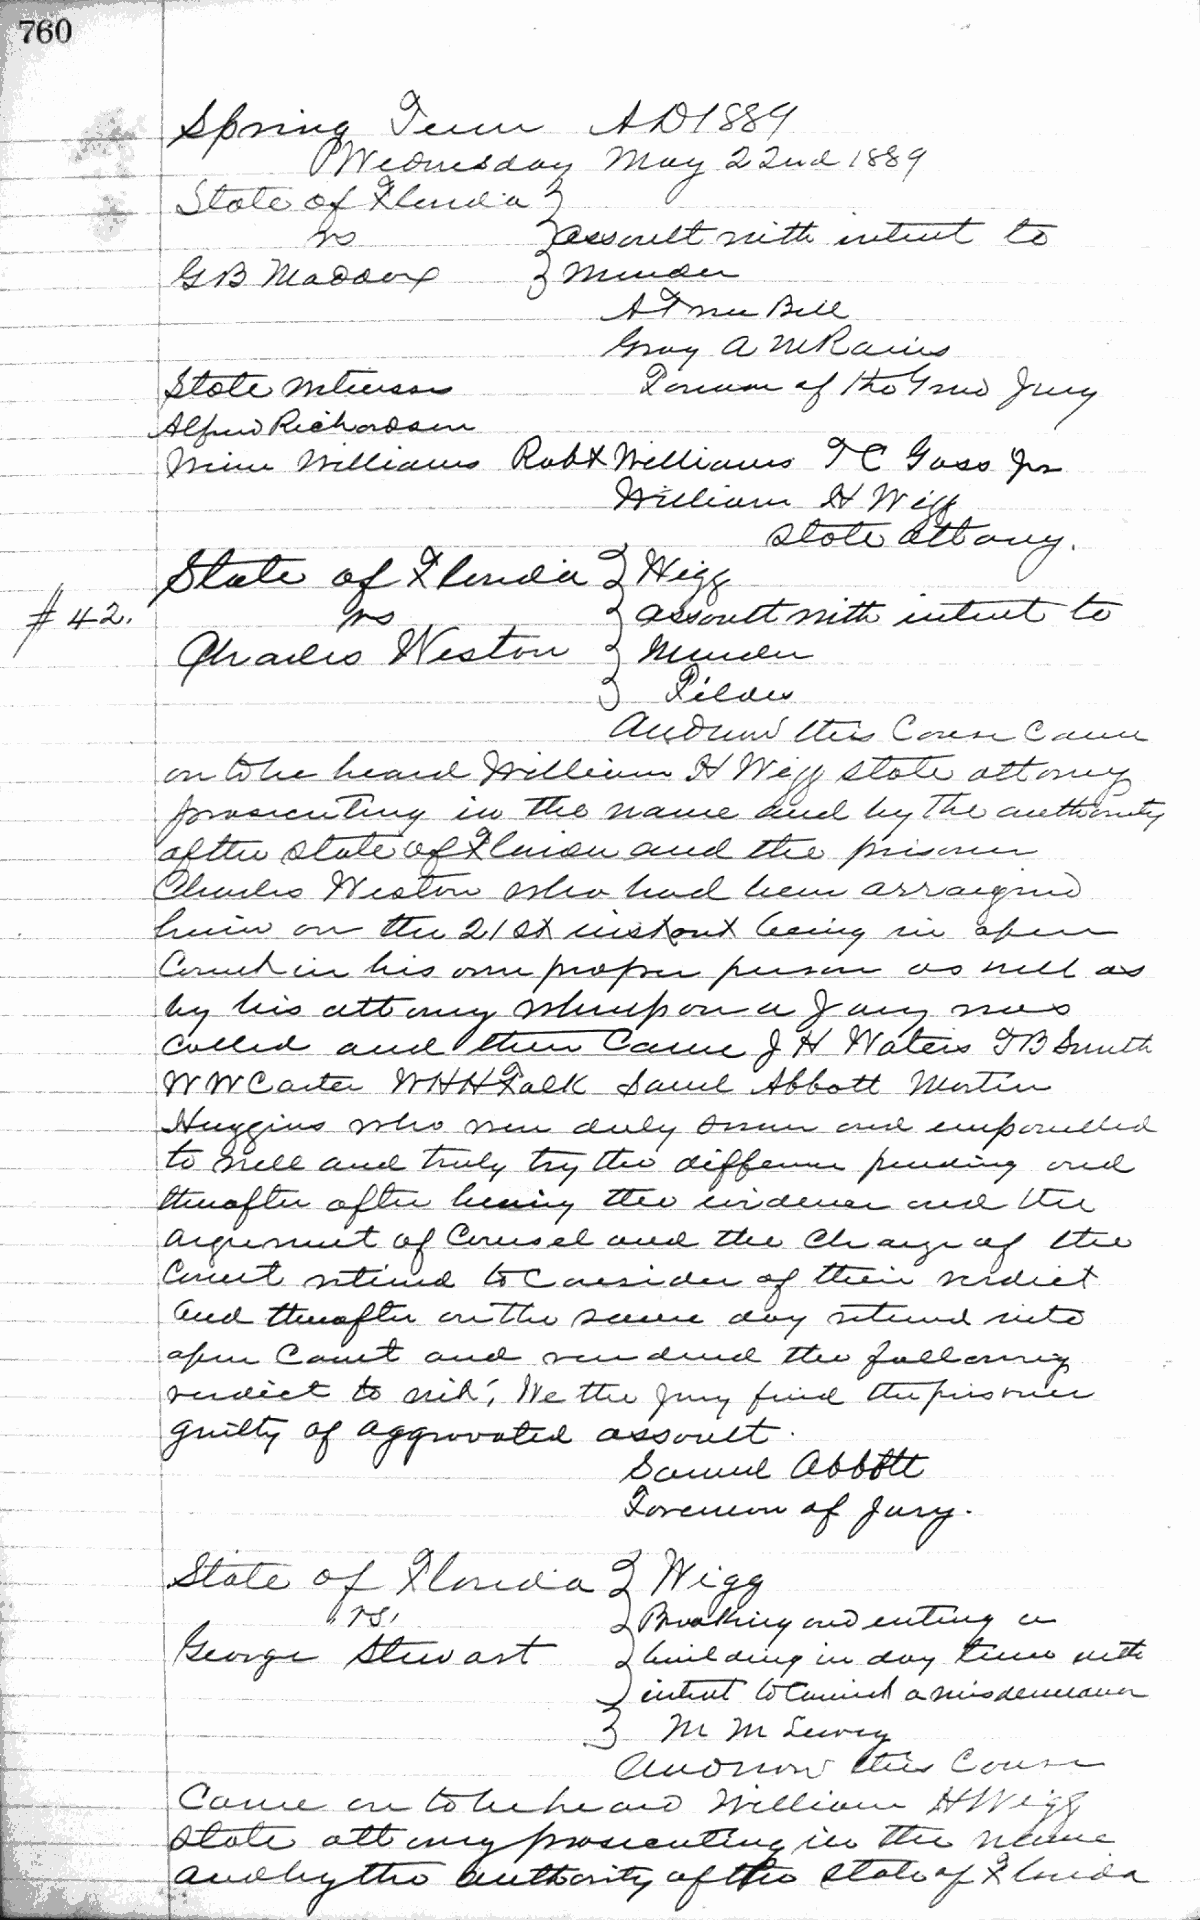 760
Spring Term AD 1889
Wednesday May 22nd 1889
State of Florida }
vs } assault with intent to
G B Maddox } Murder
A True Bill
Gray A McRaines
State witnesses Foreman of the Grand Jury
Alfred Richardson
Williams Robt Williams T C Gass Jr
William H Wigg
State attorney.
State of Florida } Wigg
#42. vs } assault with intent to
Charles Weston } Murder
} Fildes
And now this Cause Came
on to be heard William H Wigg State attorney
prosecuting in the name and by the authority
of the State of Florida and the prisoner
Charles Weston who had been arraigned
herein on the 21st instant being in open
Court in his own proper person as well as
by his attorney whereupon a Jury was
Called and then Came J H Waters T B Smith
W W Carter W H H Falk Saml Abbott Martin
Huggins who were duly sworn and empanelled
to well and truly try the difference pending and
thereafter after hearing the evidence and the
argument of Counsel and the Charge of the
Court retired to Consider of their verdict
and thereafter on the same day returned into
open Court and rendered the following
verdict to wit; We the Jury find the prisoner
guilty of aggravated assault.
Samuel Abbott
Foreman of Jury.
State of Florida } Wigg
vs. } Breaking and entering a
George Stewart } building in day time with
} intent to Commit a misdemeanor
} M M Lewey
And now this Cause
Came on to be heard William H Wigg
State attorney prosecuting in the name
and by the authority of the State of Florida